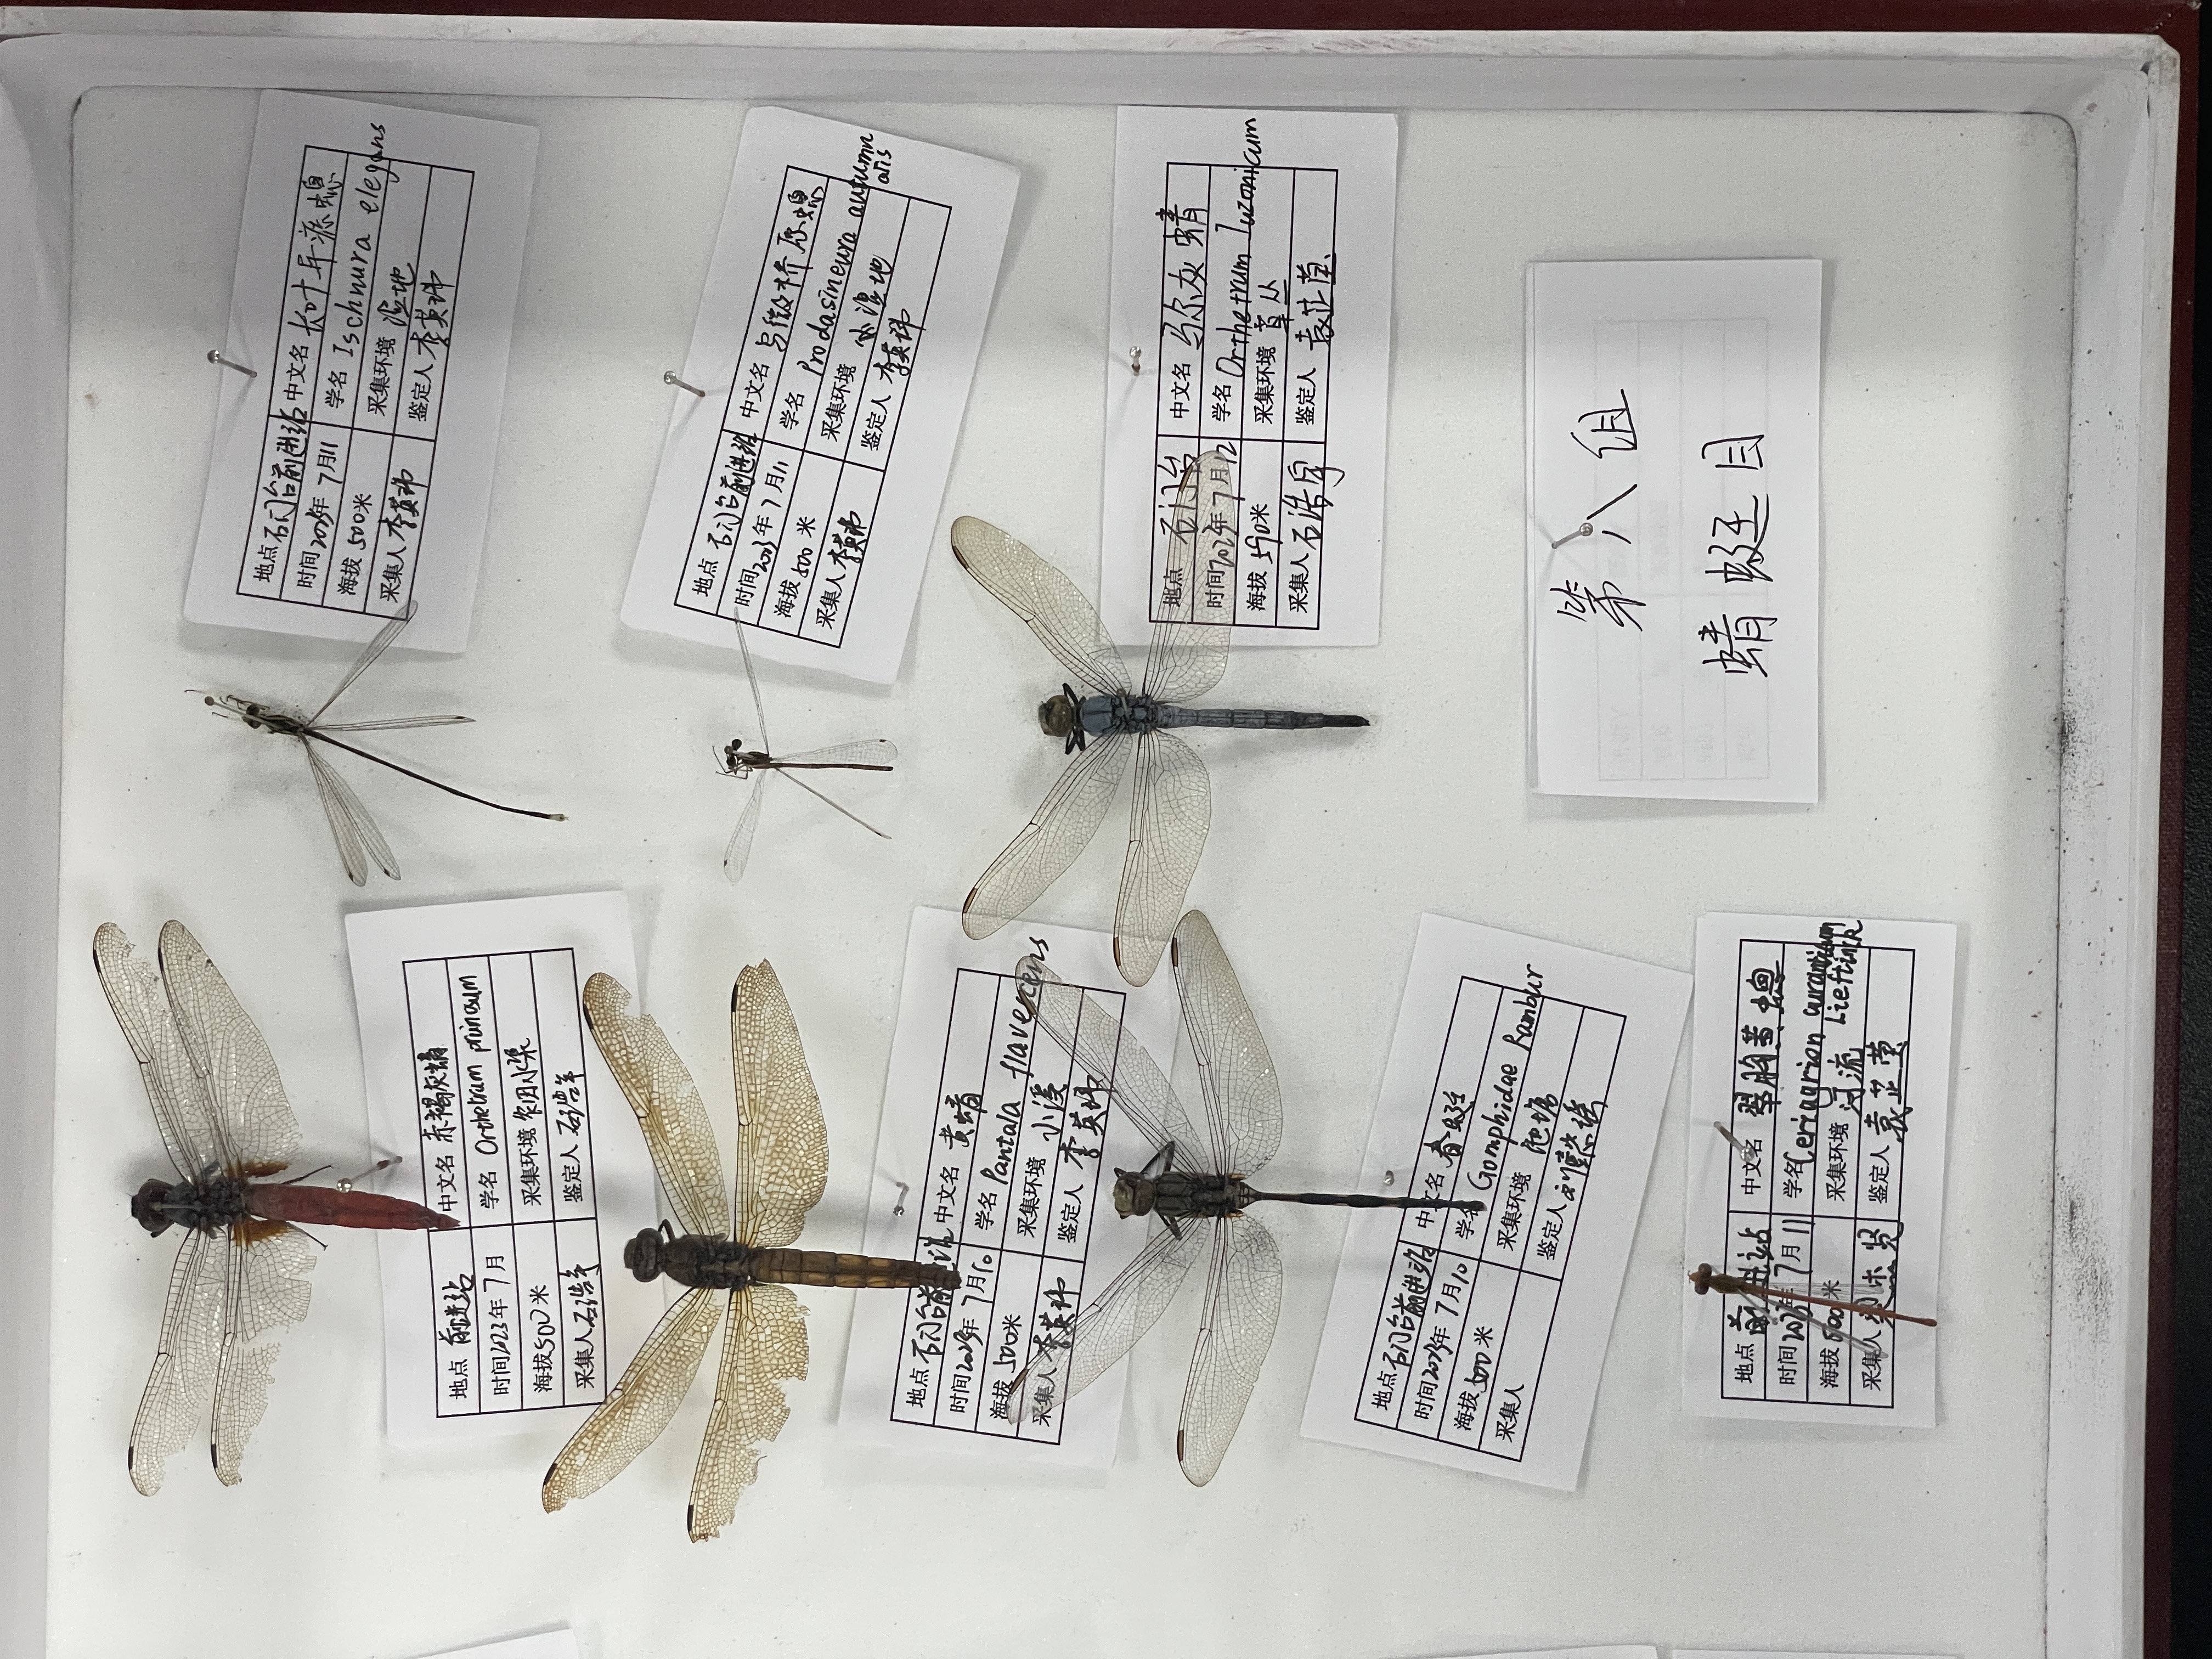 地点 石门台前进站 中文名 长叶异痣蟌
时间 2023年 7月11 学名 Ischnura elegans
海拔 500米 采集环境 湿地
采集人 李英玮 鉴定人 李英玮
地点 石门台前进站 中文名 乌微桥原蟌
时间 2023年 7月11 学名 Prodasineura autumnalis
海拔 500米 采集环境 水湿地
采集人 李英玮 鉴定人 李英玮
地点 石门台 中文名 吕尔灰蜻
时间 2023年 7月12 学名 Orthetrum luzonicum
海拔 590米 采集环境 草丛
采集人 石浩宇 鉴定人 袁芷莹
第八组
蜻蜓目
地点 前进站 中文名 赤褐灰蜻
时间 2023年 7月 学名 Orthetrum pruinosum
海拔 500米 采集环境 农田水渠
采集人 石浩宇 鉴定人
地点 石门台前进站 中文名 黄蜻
时间 2023年 7月10 学名 Pantala flavescens
海拔 500米 采集环境 小溪
采集人 李英玮 鉴定人 李英玮
地点 石门台前进站 中文名 春蜓
时间 2023年 7月10 学名 Gomphidae Rambur
海拔 500米 采集环境 池塘
采集人 鉴定人
地点 前进站 中文名 翠胸黄蟌
时间 2023年 7月11 学名 Ceriagrion aurantiacum Lieftink
海拔 500米 采集环境 河流
采集人 鉴定人 袁芷莹